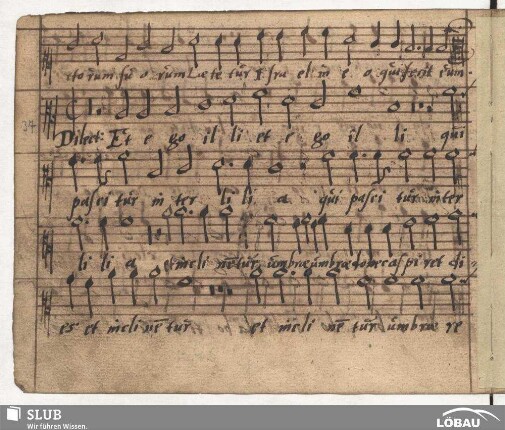 ctorum su o rum Læte tur Isra el in e o qui fecit eum.
34
Dilect: Et e go il li et e go il li qui
pasci tur in ter li li a qui pasci tur inter
li li a et incli netur umbræ umbræ donec aspi ret di
es et incli ne tur et incli ne tur umbræ re
SLUB
Wir führen Wissen.
LÖBAU